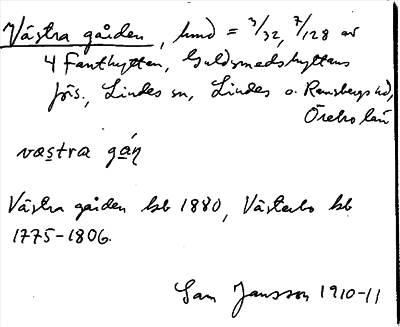 Västra gården, hmd = 3/32, 7/128 av
4 Fanthyttan, Guldsmedshyttans
förs., Lindes sn, Lindes o. Ramsbergs hd,
Örebro län
væstra gán
Västra gården kb 1880, Västerbo kb
1775-1806.
Sam Jansson 1910-11